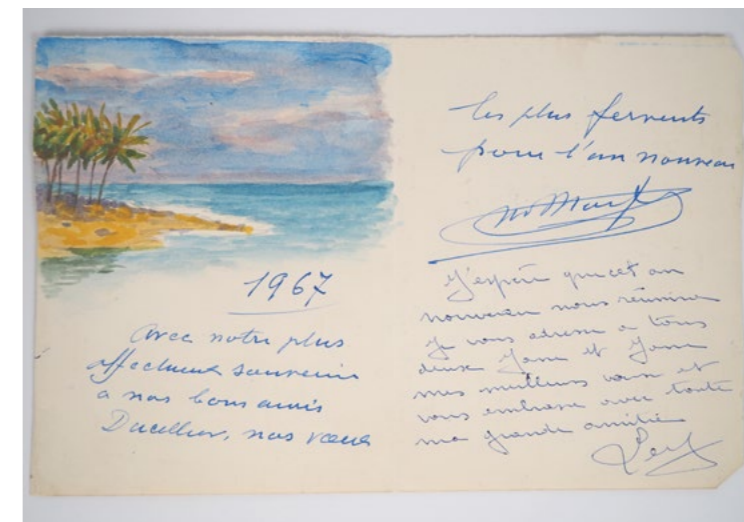 1967
Avec notre plus
affectueux souvenir
a nos bons amis
Ducellier, nos vœux
les plus fervents
pour l'an nouveau
J'espère que cet an
nouveau nous réunira
Je vous adresse a tous
deux et
mes meilleurs vœux et
vous embrasse avec toute
ma grande amitié